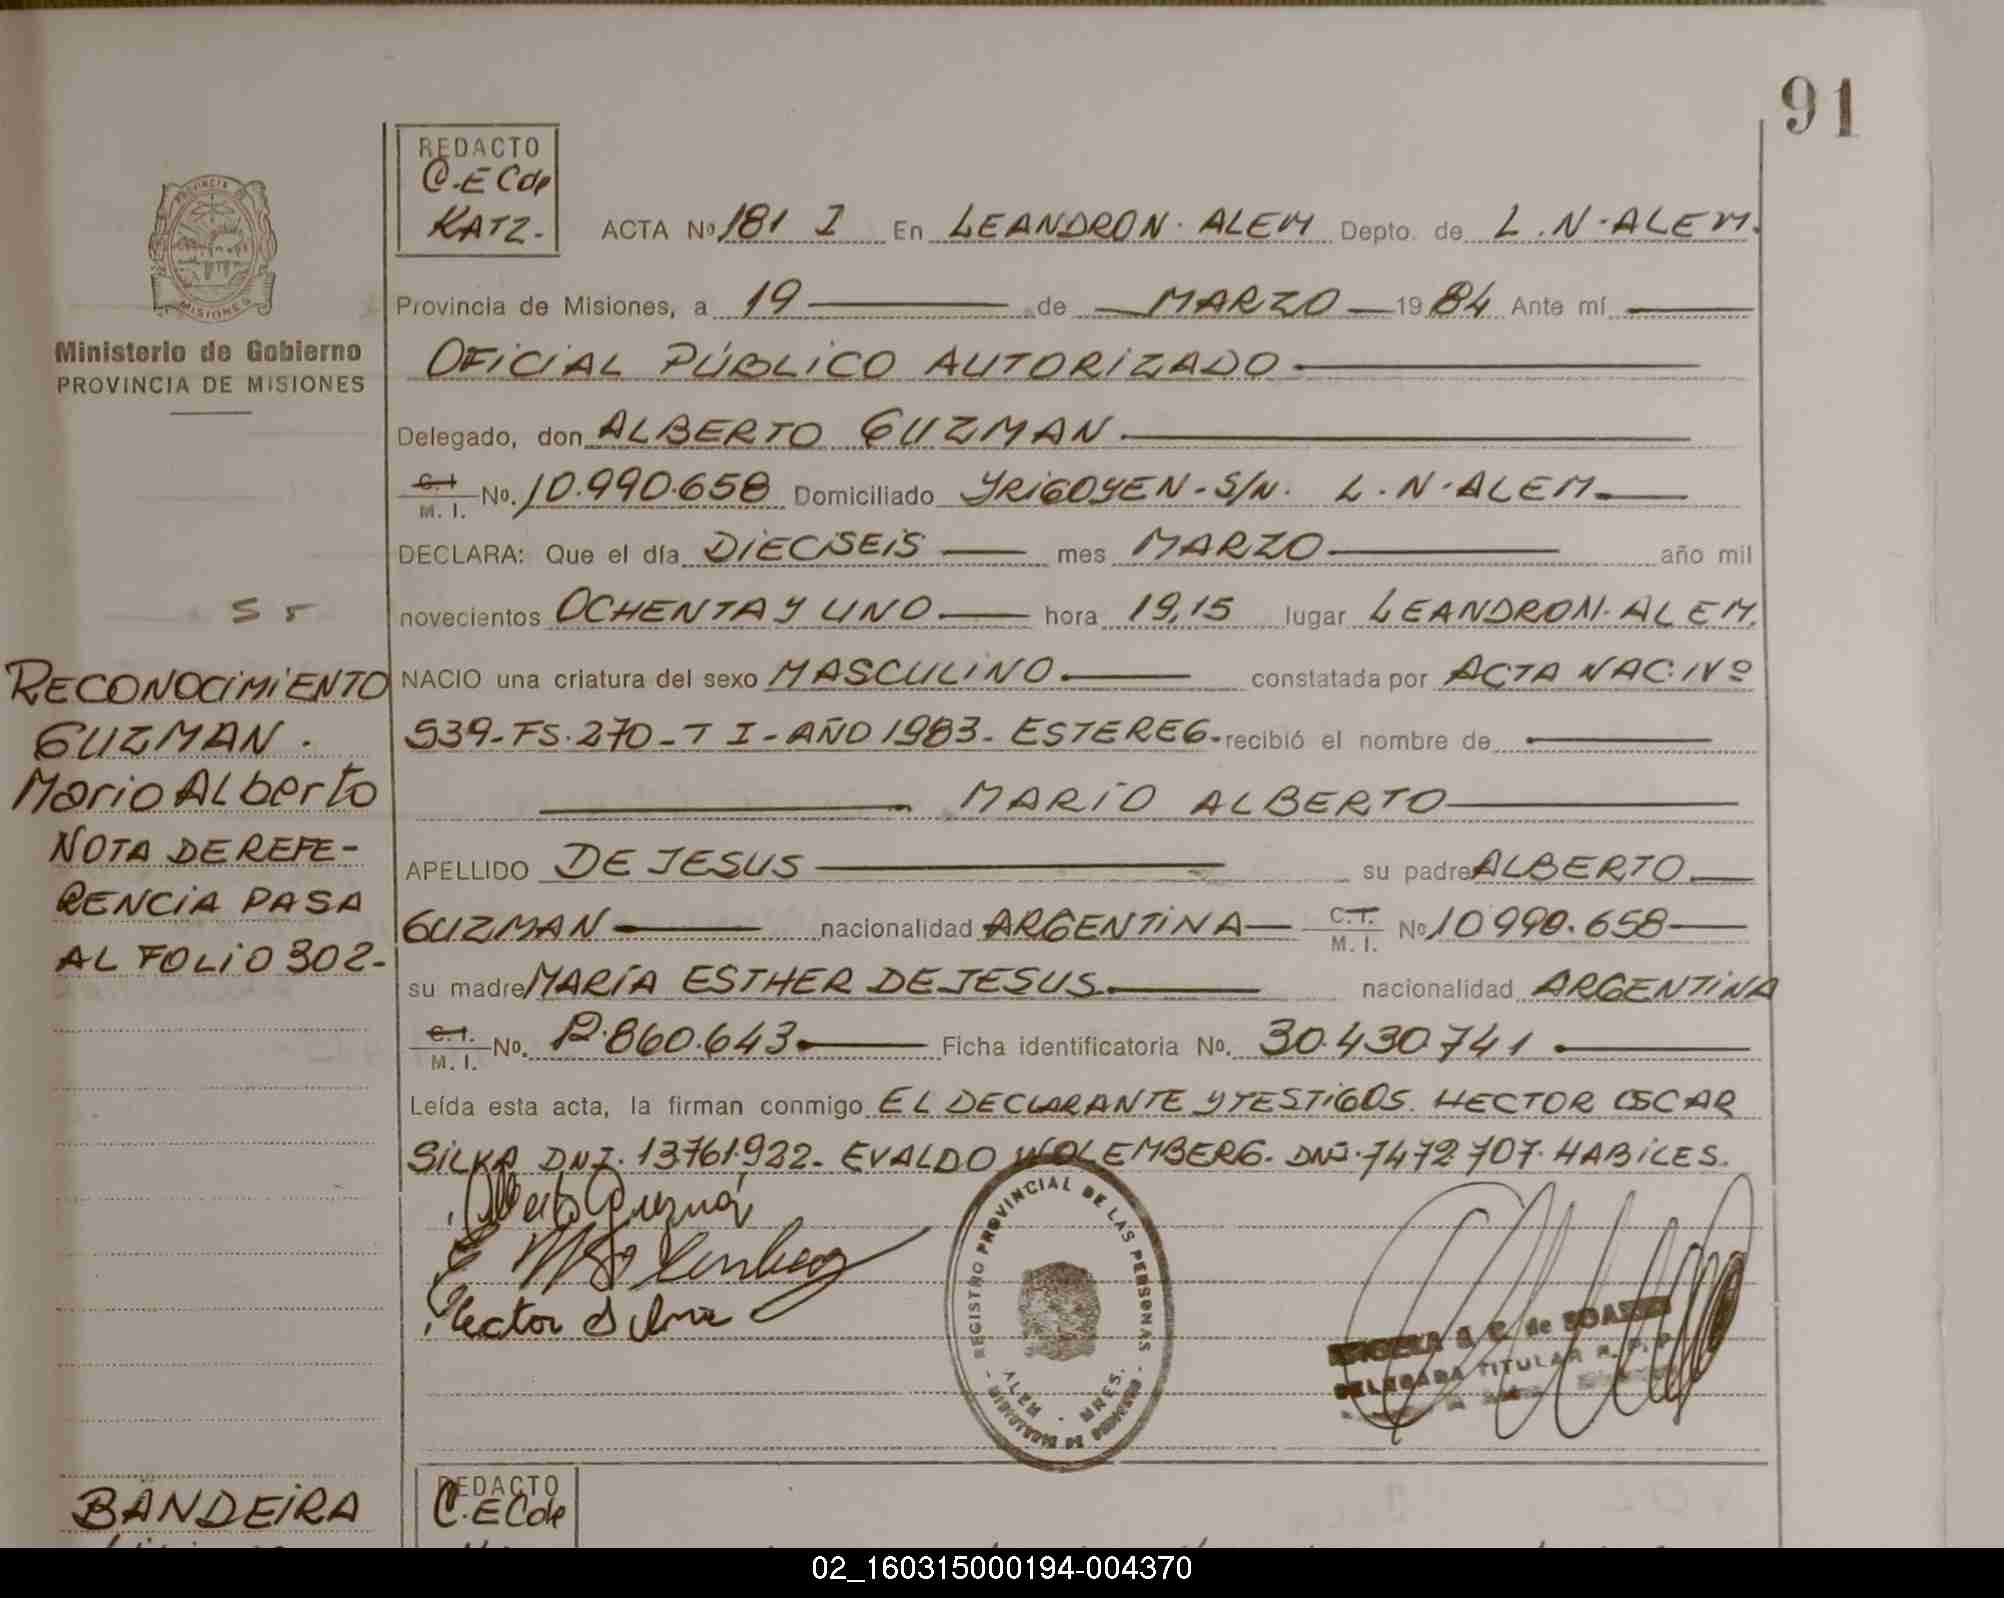 91
REDACTO
C.E Cde
KATZ.-
ACTA Nº 181 I En LEANDRO N. ALEM Depto. de L.N.ALEM.
PROVINCIA DE
MISIONES
Provincia de Misiones, a 19 de MARZO 1984 Ante mí
Ministerio de Gobierno
PROVINCIA DE MISIONES
OFICIAL PÚBLICO AUTORIZADO
Delegado, don ALBERTO GUZMAN
C.I M. I. No. 10.990.658 Domiciliado YRIGOYEN-S/N. L.N.ALEM
DECLARA: Que el día DIECISEIS mes MARZO año mil
novecientos OCHENTA Y UNO hora 19,15 lugar LEANDRO N. ALEM.
NACIO una criatura del sexo MASCULINO constatada por ACTA NAC. Nº
539-FS.270-T I-AÑO 1983-ESTEREG. recibió el nombre de
MARIO ALBERTO
APELLIDO DE JESUS su padre ALBERTO
GUZMAN nacionalidad ARGENTINA C.I. M. I. Nº 10990.658
su madre MARÍA ESTHER DE JESUS nacionalidad ARGENTINA
C.I. M. I. No. 12.860.643 Ficha identificatoria No. 30.430.741
Leída esta acta, la firman conmigo EL DECLARANTE Y TESTIGOS. HECTOR OSCAR
SILVA DNI. 13761.922. EVALDO WOLEMBERG. DNI. 7472707. HABILES.
RECONOCIMIENTO
GUZMAN.
Mario Alberto
NOTA DE REFE-
RENCIA PASA
AL FOLIO 302-
Alberto Guzmán
Hector Silva
REGISTRO PROVINCIAL DE LAS PERSONAS
ALEM - MNES.
DELEGADA TITULAR R. P. P.
BANDEIRA
REDACTO
C.E Cde
02_160315000194-004370